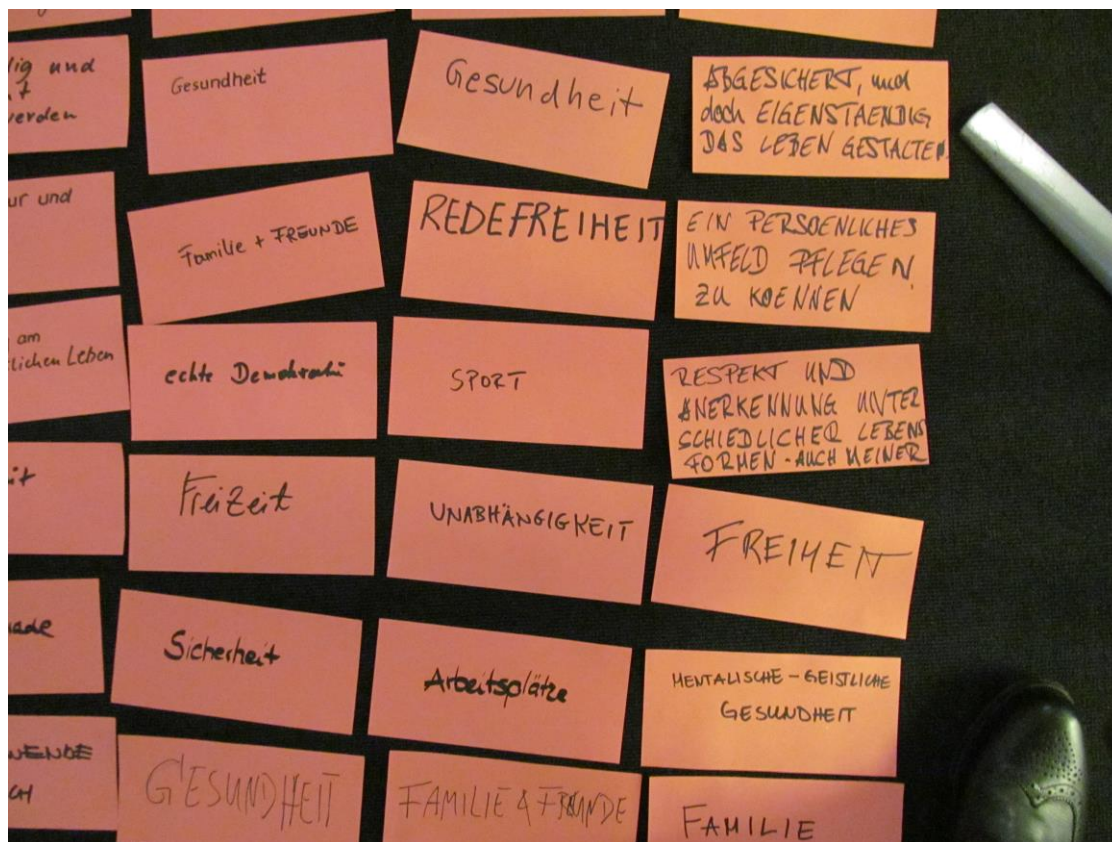 lig und
werden
ur und
am
tlichen Leben
it
ade
WENDE
Gesundheit
Familie + FREUNDE
echte Demokratie
Freizeit
Sicherheit
GESUNDHEIT
Gesundheit
REDEFREIHEIT
SPORT
UNABHÄNGIGKEIT
Arbeitsplätze
FAMILIE & FREUNDE
ABGESICHERT, und
doch EIGENSTAENDIG
DAS LEBEN GESTALTEN
EIN PERSOENLICHES
UMFELD PFLEGEN
ZU KOENNEN
RESPEKT UND
ANERKENNUNG UNTER
SCHIEDLICHER LEBENS
FORMEN - AUCH MEINER
FREIHEIT
MENTALISCHE - GEISTLICHE
GESUNDHEIT
FAMILIE